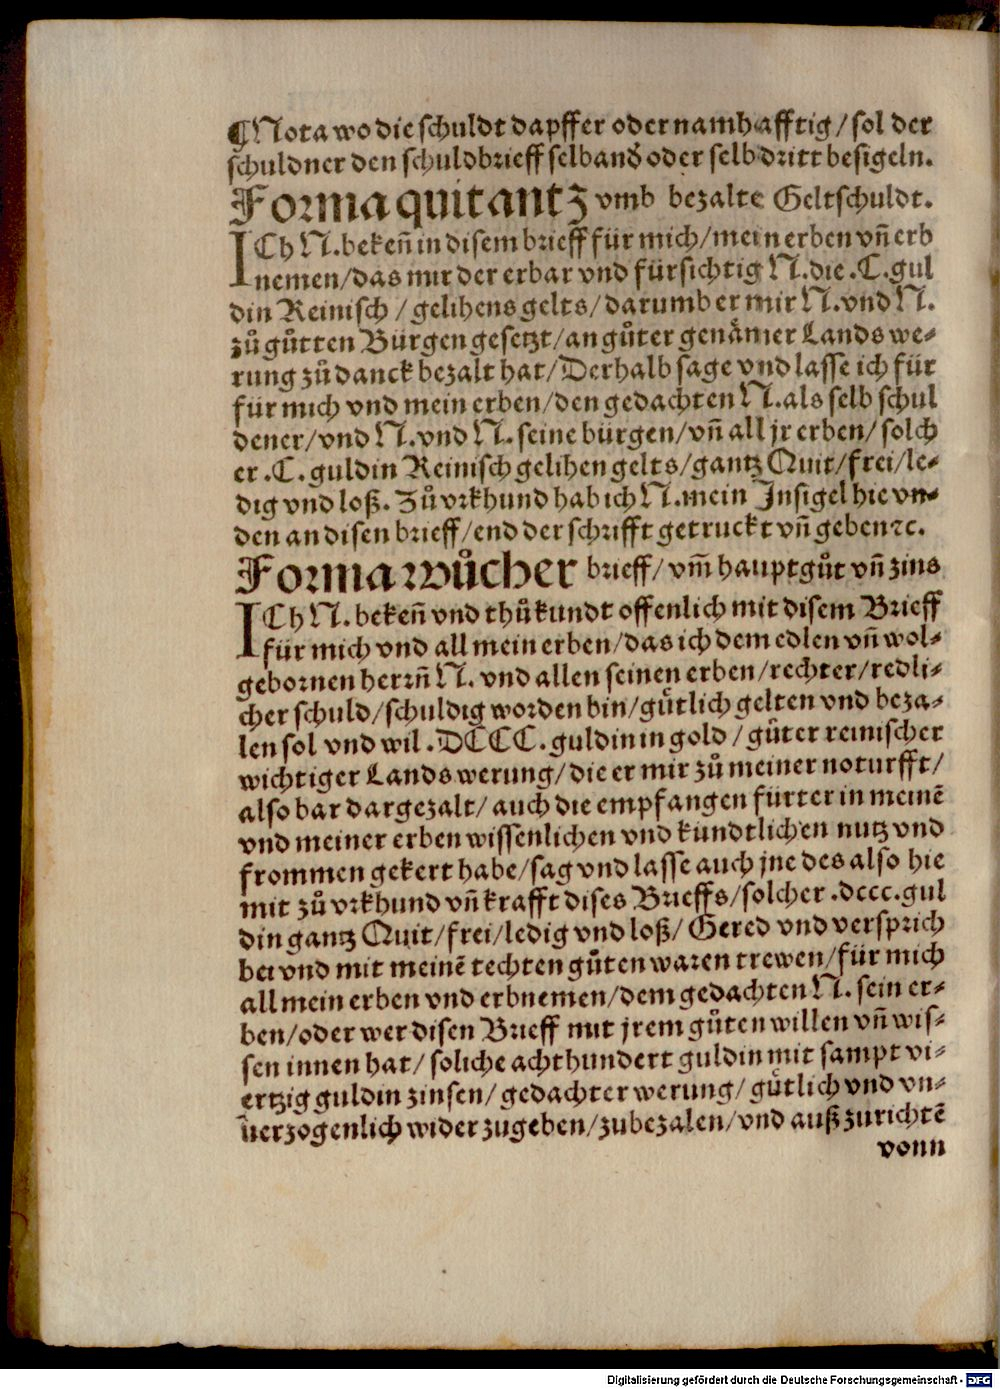 ¶Nota wo die schuldt dapffer oder namhafftig/ sol der
schuldner den schuldbrieff selband oder selb dritt besigeln.
Forma quitantz vmb bezalte Geltschuldt.
ICh N. bekeñ in disem brieff für mich/ mein erben vñ erb
nemen/ das mir der erbar vnd fürsichtig N. die .C. gul
din Reinisch / gelihens gelts/ darumb er mir N. vnd N.
zů gůtten Bürgen gesetzt/ an gůter genämer Lands we-
rung zů danck bezalt hat/ Derhalb sage vnd lasse ich für
für mich vnd mein erben/ den gedachten N. als selb schul
dener/ vnd N. vnd N. seine bürgen/ vñ all jr erben/ solch
er .C. guldin Reinisch gelihen gelts/ gantz Quit/ frei/ le-
dig vnd loß. Zů vrkhund hab ich N. mein Insigel hie vn-
den an disen brieff/ end der schrifft getruckt vñ geben ꝛc.
Forma wůcher brieff/ vm̃ hauptgůt vñ zins
ICh N. bekeñ vnd thů kundt offenlich mit disem Brieff
für mich vnd all mein erben/ das ich dem edlen vñ wol-
gebornen herrñ N. vnd allen seinen erben/ rechter/ redli-
cher schuld/ schuldig worden bin/ gůtlich gelten vnd beza-
len sol vnd wil .DCCC. guldin in gold / gůter reinischer
wichtiger Lands werung/ die er mir zů meiner noturfft/
also bar dargezalt/ auch die empfangen fürter in meinẽ
vnd meiner erben wissenlichen vnd kundtlichen nutz vnd
frommen gekert habe/ sag vnd lasse auch jne des also hie
mit zů vrkhund vñ krafft dises Brieffs/ solcher .dccc. gul
din gantz Quit/ frei/ ledig vnd loß/ Gered vnd versprich
bei vnd mit meinẽ techten gůten waren trewen/ für mich
all mein erben vnd erbnemen/ dem gedachten N. sein er-
ben/ oder wer disen Brieff mit jrem gůten willen vñ wis-
sen innen hat/ soliche achthundert guldin mit sampt vi-
ertzig guldin zinsen/ gedachter werung/ gůtlich vnd vn-
uerzogenlich wider zugeben/ zubezalen/ vnd auß zurichtẽ
vonn
Digitalisierung gefördert durch die Deutsche Forschungsgemeinschaft - DFG